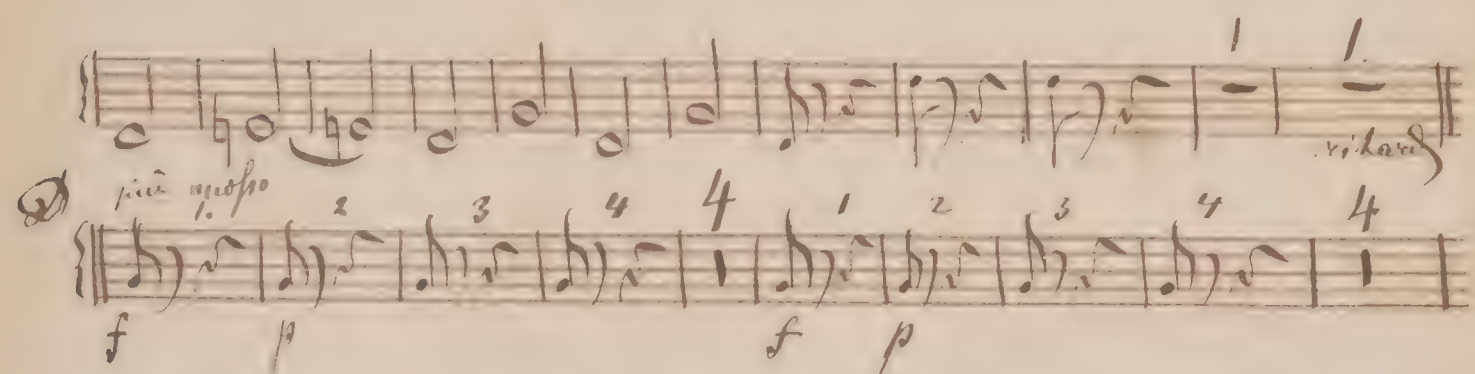 1 1.
ritard
D più mosso
1. 2 3 4 4 1 2 3 4 4
f p f p